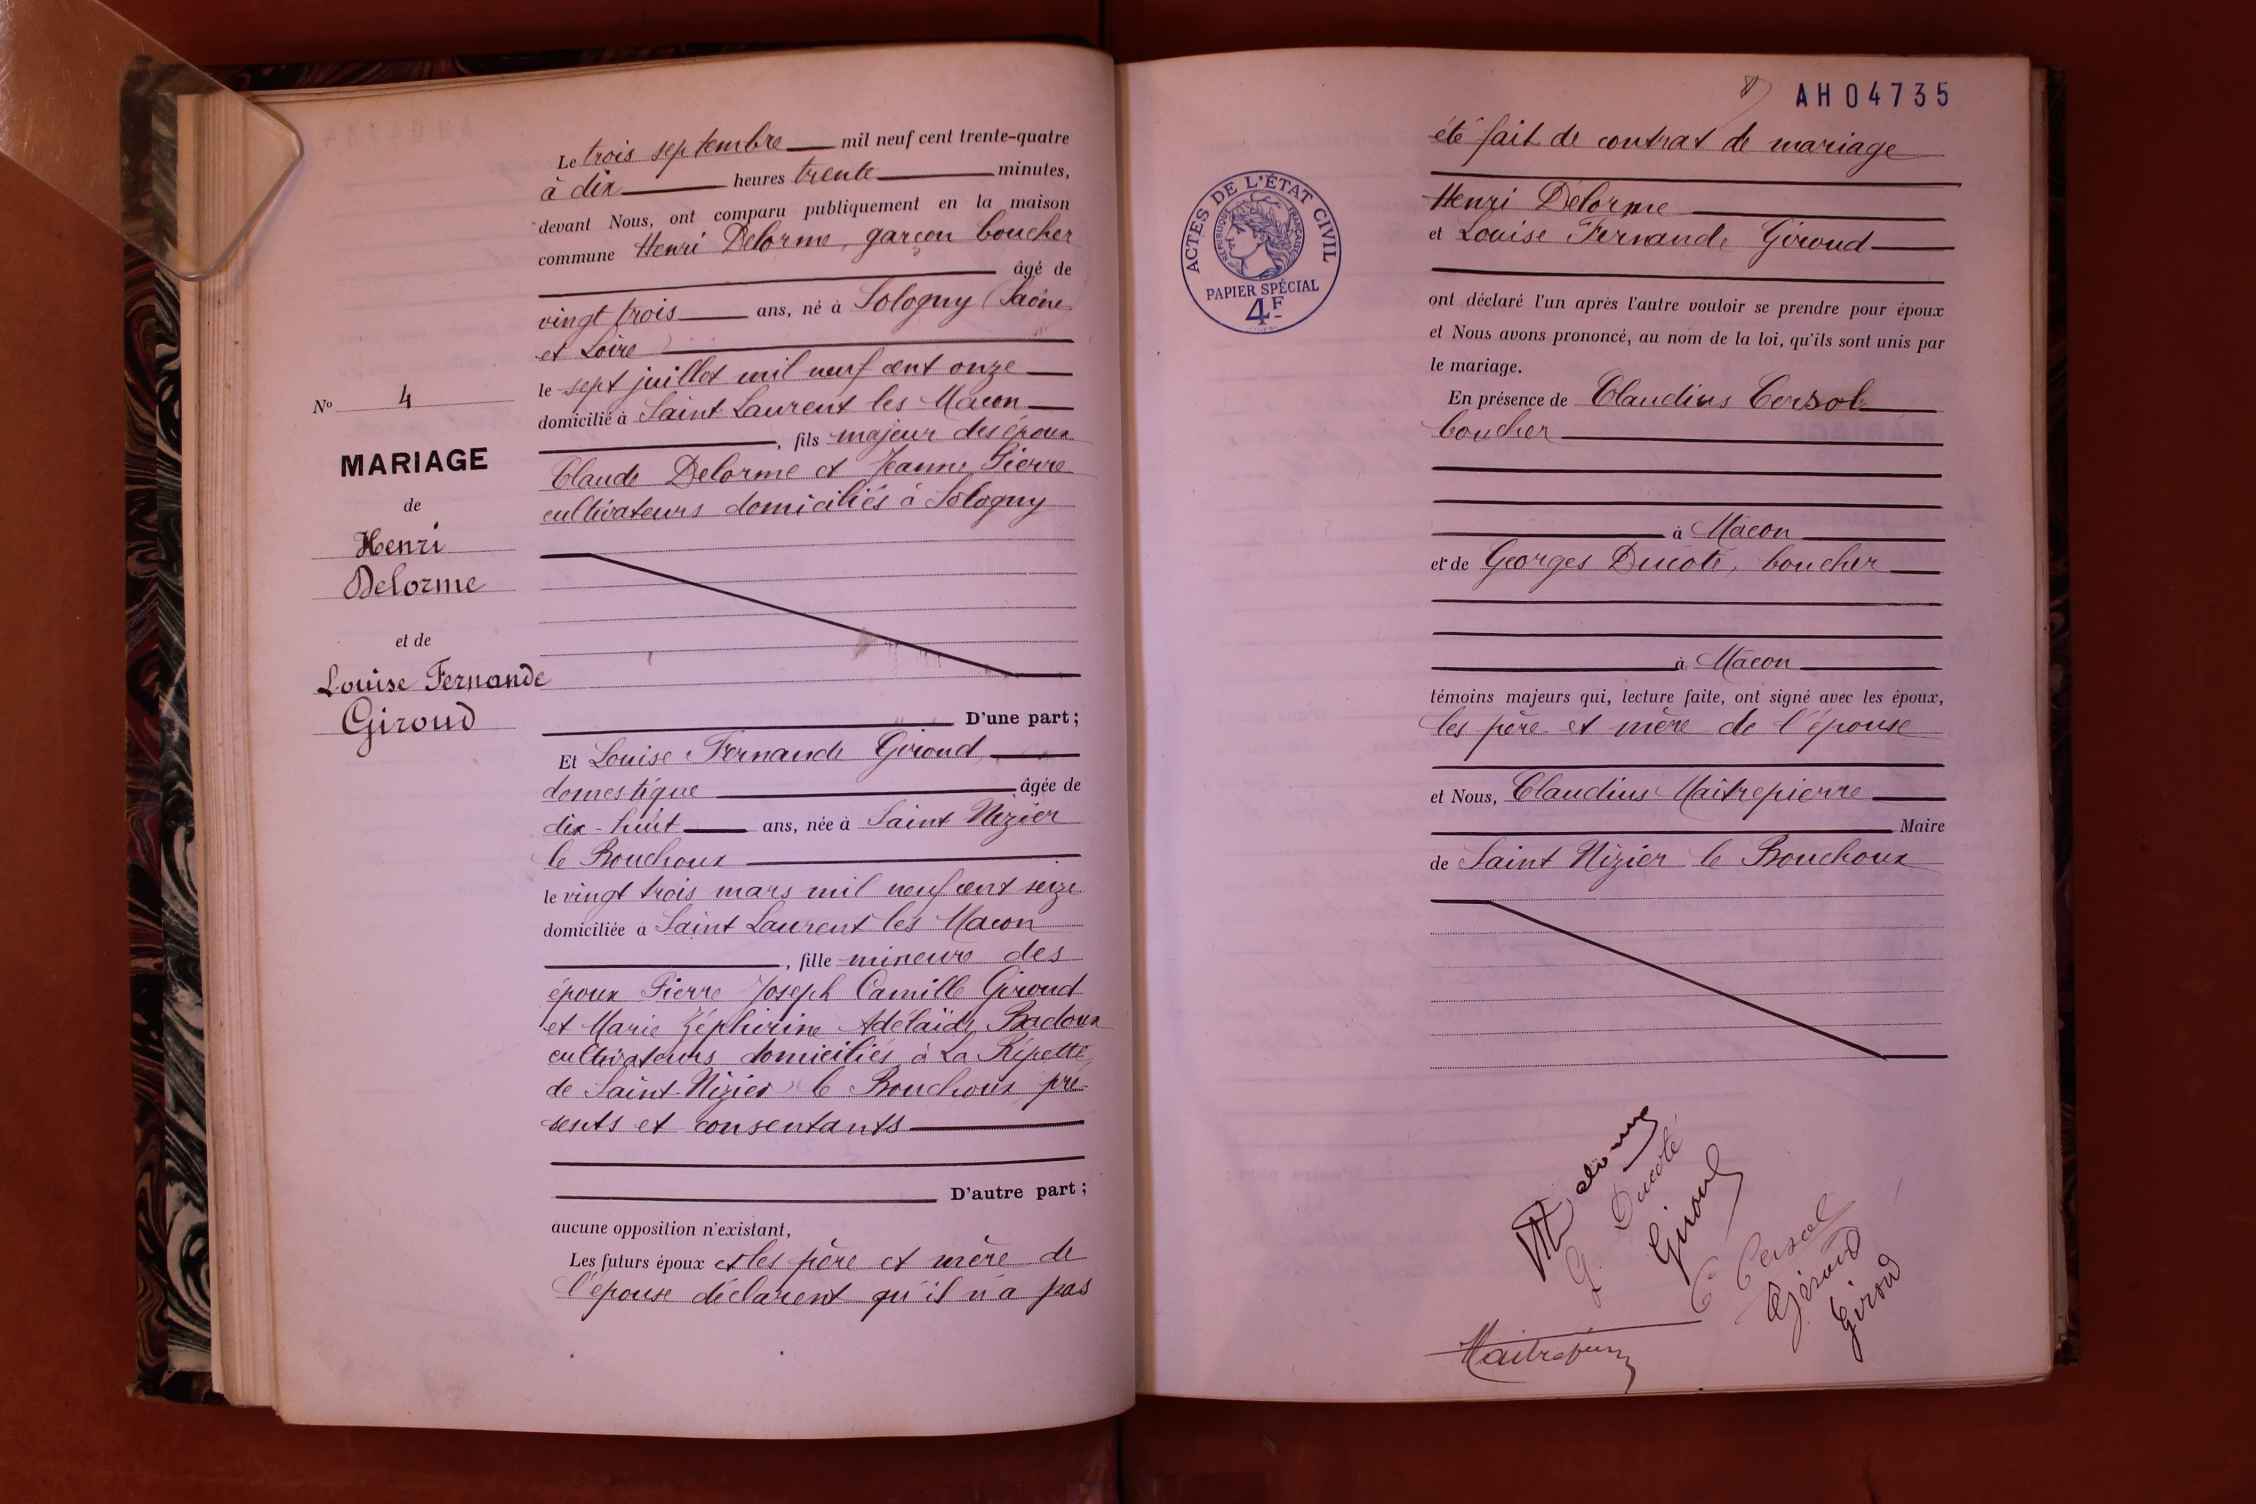 Le trois septembre mil neuf cent trente-quatre
à dix heures trente minutes,
devant Nous, ont comparu publiquement en la maison
commune Henri Delorme, garçon boucher
âgé de
vingt trois ans, né à Sologny (Saône
et Loire)
le sept juillet mil neuf cent onze
domicilié à Saint Laurent les Macon
, fils majeur des époux
Claude Delorme et Jeanne Pierre
cultivateurs domiciliés à Sologny
No 4
MARIAGE
de
Henri
Delorme
et de
Louise Fernande
Giroud
D'une part;
Et Louise Fernande Giroud
domestique âgée de
dix-huit ans, née à Saint Nizier
le Bouchoux
le vingt trois mars mil neuf cent seize
domiciliée à Saint Laurent les Macon
, fille mineure des
époux Pierre Joseph Camille Giroud
et Marie Zéphirine Adélaïde Badoux
cultivateurs domiciliés à La Répette
de Saint-Nizier le Bouchoux pré-
sents et consentants
D'autre part;
aucune opposition n'existant,
Les futurs époux et les père et mère de
l'épouse déclarent qu'il n'a pas
AH04735
été fait de contrat de mariage
ACTES DE L'ÉTAT CIVIL
RÉPUBLIQUE FRANÇAISE
PAPIER SPÉCIAL
4F
Henri Delorme
et Louise Fernande Giroud
ont déclaré l'un après l'autre vouloir se prendre pour époux
et Nous avons prononcé, au nom de la loi, qu'ils sont unis par
le mariage.
En présence de Claudius Corsol
boucher
à Macon
et de Georges Ducoté, boucher
à Macon
témoins majeurs qui, lecture faite, ont signé avec les époux,
les père et mère de l'épouse
et Nous, Claudius Maitrepierre
Maire
de Saint Nizier le Bouchoux
Delorme
G. Ducoté
Giroud
C Corsol
Giroud
Giroud
Maitrepierre